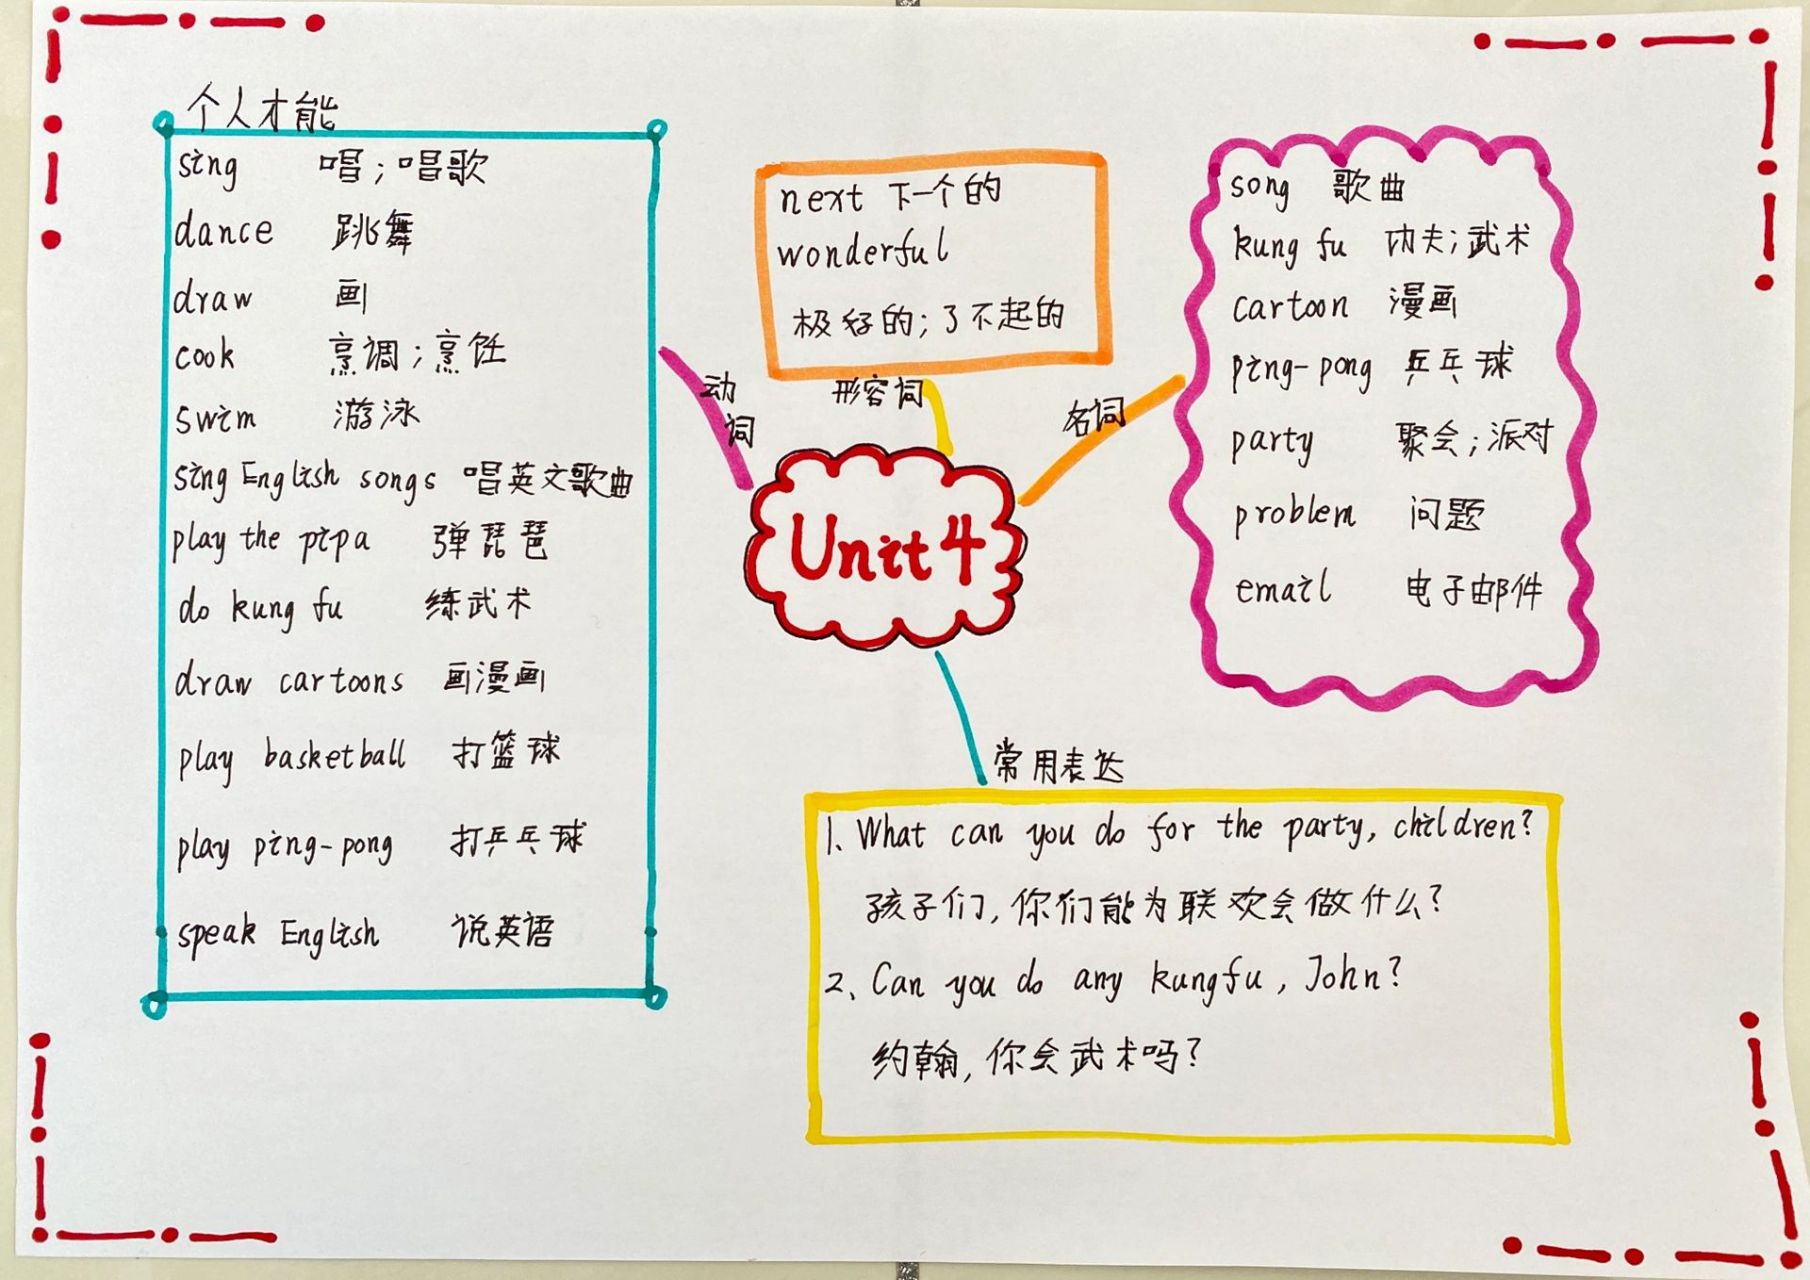 个人才能
sing 唱；唱歌
dance 跳舞
draw 画
cook 烹调；烹饪
swim 游泳
sing English songs 唱英文歌曲
play the pipa 弹琵琶
do kung fu 练武术
draw cartoons 画漫画
play basketball 打篮球
play ping-pong 打乒乓球
speak English 说英语
动词
next 下一个的
wonderful
极好的；了不起的
形容词
名词
song 歌曲
kung fu 功夫；武术
cartoon 漫画
ping-pong 乒乓球
party 聚会；派对
problem 问题
email 电子邮件
Unit 4
常用表达
1. What can you do for the party, children?
孩子们，你们能为联欢会做什么？
2、Can you do any kungfu, John?
约翰，你会武术吗？